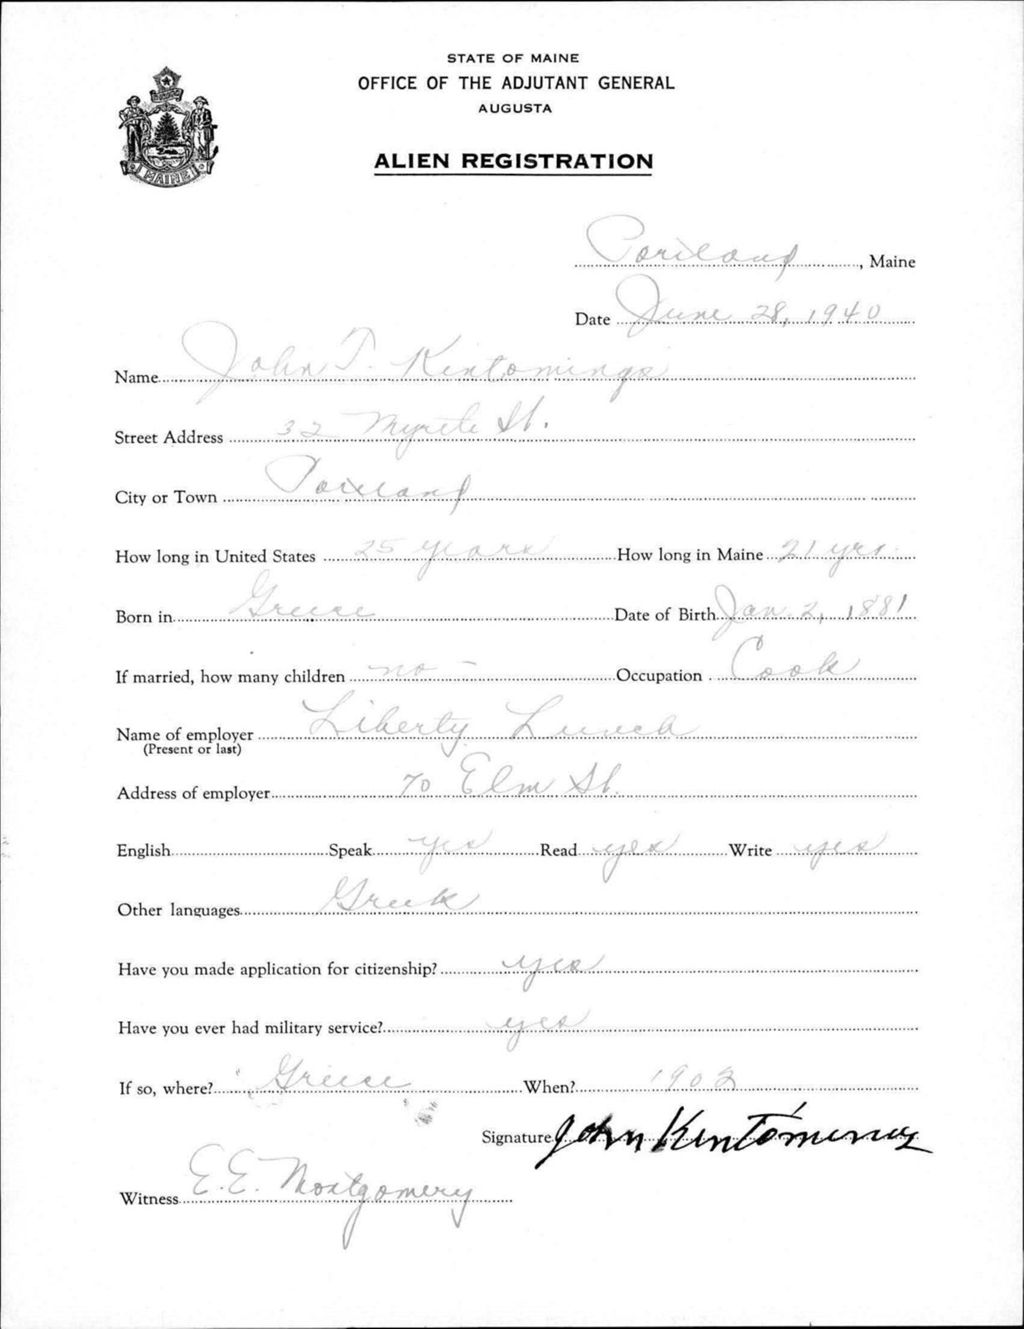 STATE OF MAINE
OFFICE OF THE ADJUTANT GENERAL
AUGUSTA
ALIEN REGISTRATION
MAINE
Portland, Maine
Date June 28, 1940
Name John T. Kentomings
Street Address 32 Myrtle St.
City or Town Portland
How long in United States 25 years How long in Maine 21 yrs.
Born in Greece Date of Birth Jan. 2, 1881
If married, how many children no - Occupation Cook
Name of employer Liberty Lunch
(Present or last)
Address of employer 70 Elm St.
English Speak yes Read yes Write yes
Other languages Greek
Have you made application for citizenship? yes
Have you ever had military service? yes
If so, where? Greece When? 1902
Signature John
Witness E. E. Montgomery